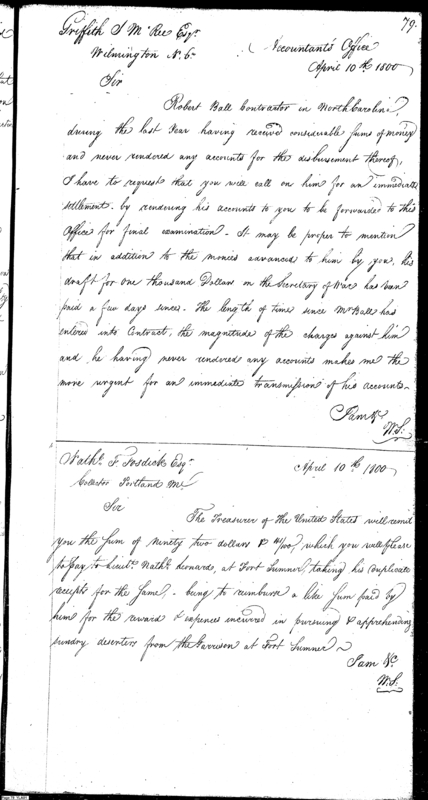 79.
Griffith J McRee Esqr
Wilmington N. C.
Accountants Office
April 10th 1800
Sir
Robert Ball Contractor in North Carolina,
during the last Year having received considerable sums of money
and never rendered any accounts for the disbursement thereof,
I have to request that you will call on him for an immediate
settlement. by rendering his accounts to you to be forwarded to this
Office for final examination - It may be proper to mention
that in addition to the monies advanced to him by you, his
draft for One thousand Dollars on the Secretary of War has been
paid a few days since. The length of time since Mr Ball has
entered into Contract, the magnitude of the charges against him
and he having never rendered any accounts makes me the
more urgent for an immediate transmission of his accounts -
I am &c
W. S:
Nathl. F. Fosdick Esqr
Collector Portland Me
April 10th 1800
Sir
The Treasurer of the United States will remit
you the Sum of ninety two dollars & /100, which you will please
to pay to Lieut. Nathl. Leonard, at Fort Sumner, taking his duplicate
receipts for the same. - being to reimburse a like sum paid by
him for the reward & expences incurred in pursuing & apprehending
sundry deserters from the Garrison at Fort Sumner -
I am &c
W. S: